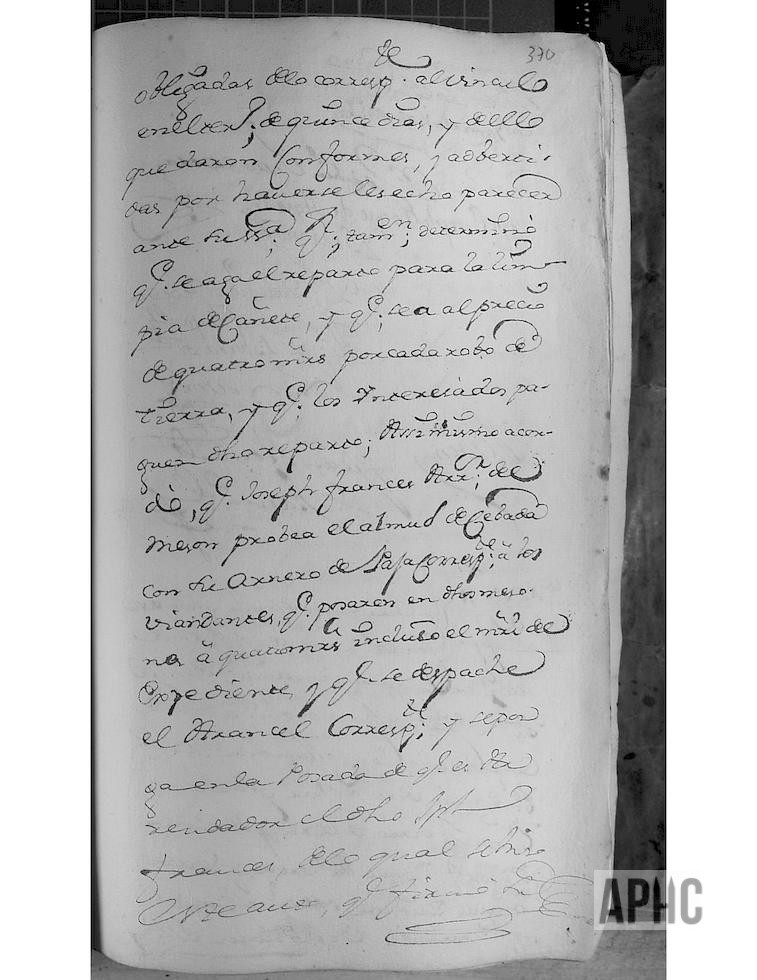 370
obligadas delo corresp.te al vincul
en el ter.; de quince dias, y dello
quedaron Conformes, y adberti-
das por haverse les echo parecer
ante su ss.a; q.e; tam.en; determinó
q.e se aga el reparto para la lim-
pia de Cañete, y q.e; sea al precio
de quatro mrs por cada robo de
tierra, y q.e; los Interesados pa-
guen dho reparto; Assimismo acor-
dó, q.e Joseph frances Arr.or; del
meson probea el almud de Cebada
con su Arnero de Paja Corresp.te; a los
viandantes, q.e posaren en dhos meso-
nes á quatro mrs incluso el mrl del
Expediente, y q.e se despache
el Arancel Corresp.te; y se pon
ga en la Posada de q.e es Ar
rendador el dho Jph
frances, delo qual se hizo
este auto, q.e firmó su
APHC